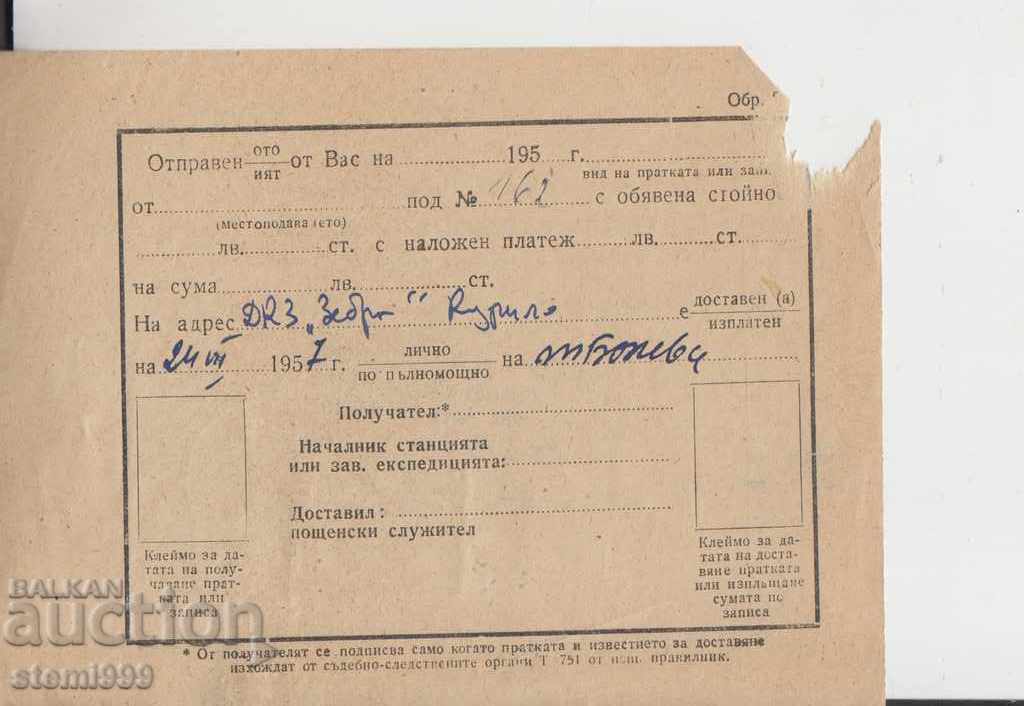 Обр.
Отправен ото от Вас на 195 г.
ият
вид на пратката или зап.
от под № 162 с обявена стойно
(местоподаването)
лв. ст. с наложен платеж лв. ст.
на сума лв. ст.
На адрес ДИЗ „Зебра" Курило е доставен (а)
изплатен
на 24 VII 1957 г. лично на
по пълномощно
Получател:*
Началник станцията
или зав. експедицията:
Доставил:
пощенски служител
Клеймо за да-
тата на полу-
чаване прат-
ката или
записа
Клеймо за да-
тата на доста-
вяне пратката
или изплащане
сумата по
записа
* От получателят се подписва само когато пратката и известието за доставяне
изхождат от съдебно-следствените органи Т 751 от правилник.
BALKAN
auction
stemi999